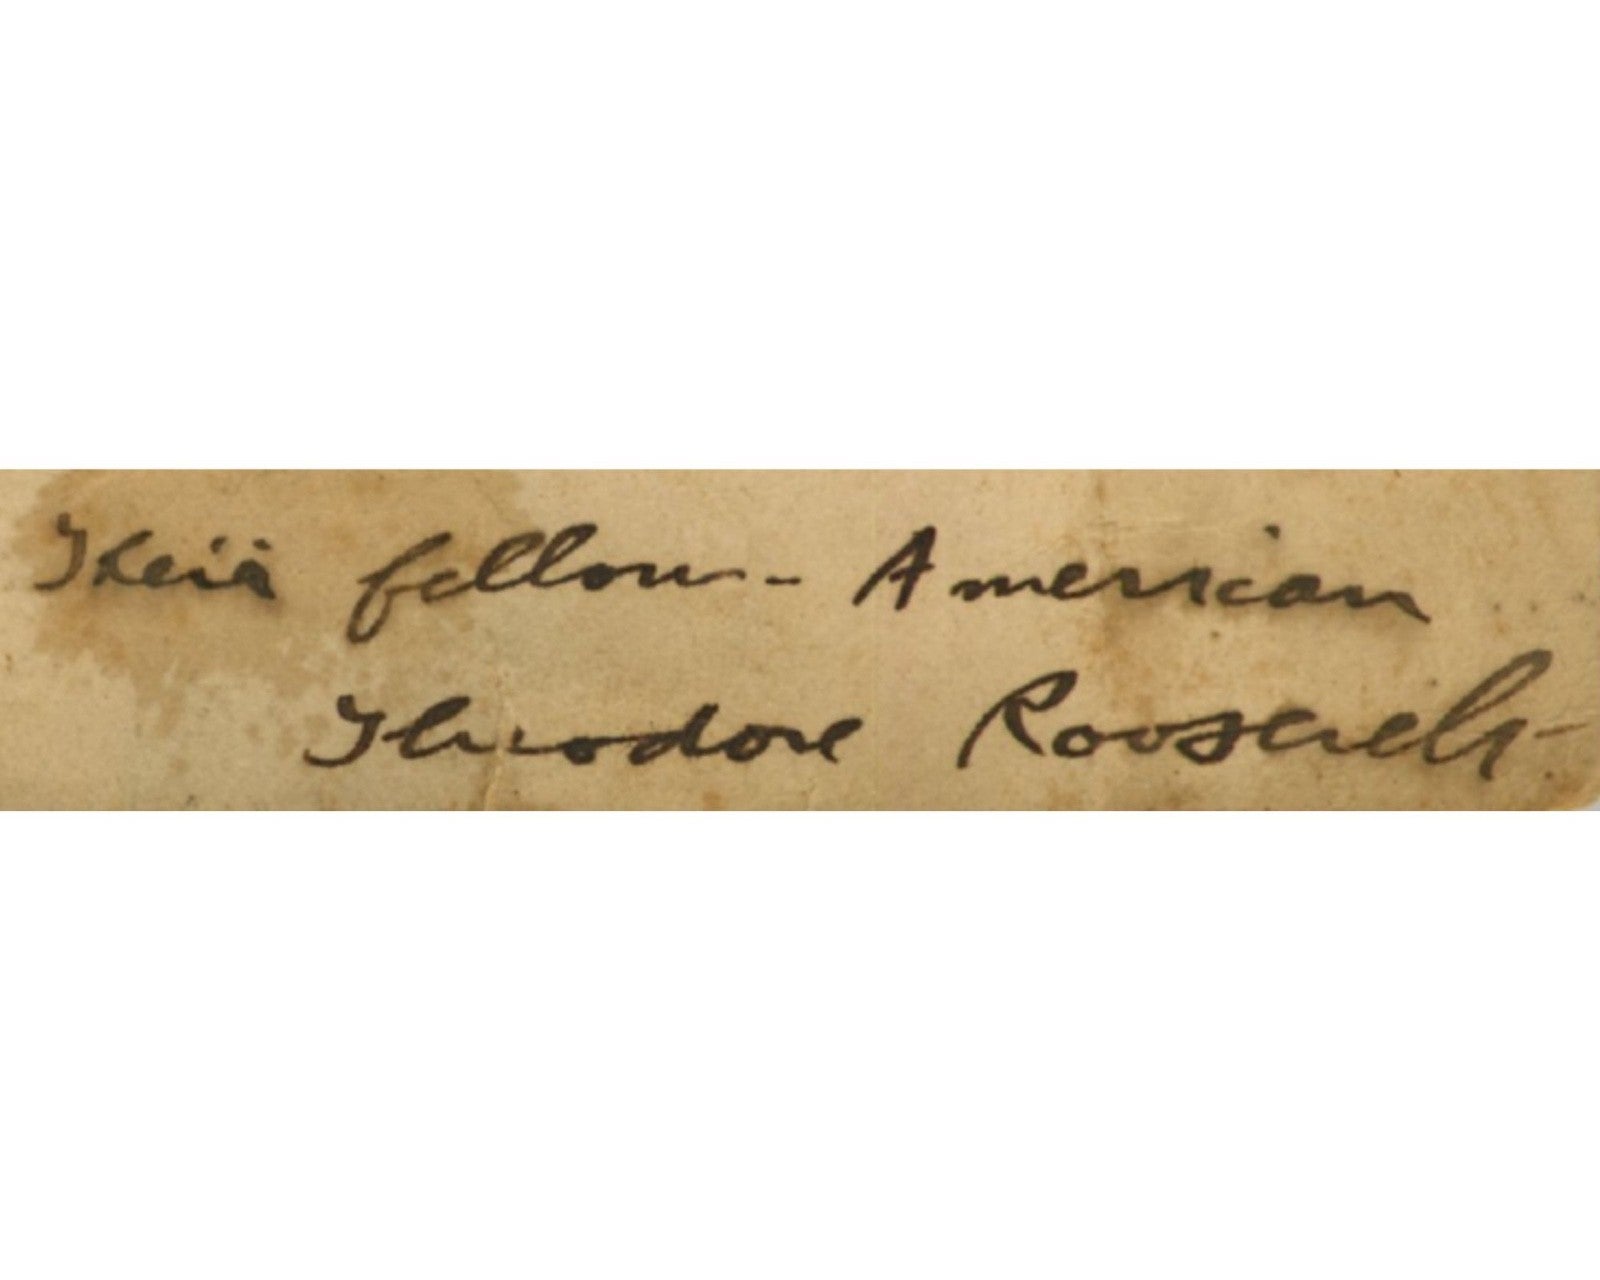 Their fellow-American
Theodore Roosevelt